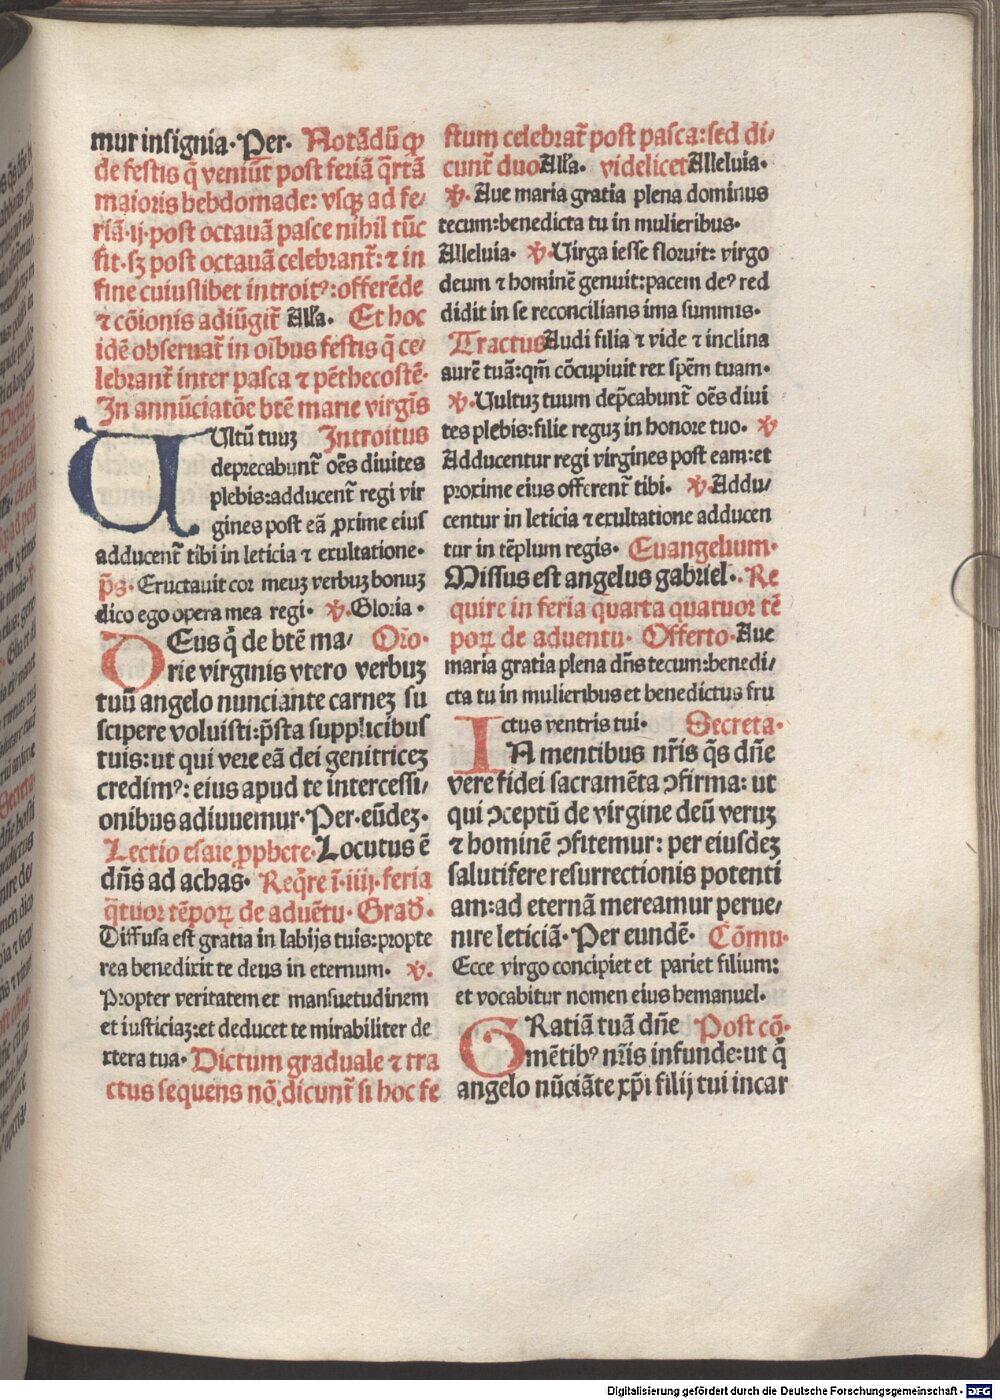 mur insignia. Per. Notādū ꝙ
de festis q̄ veniūt post feriā q̄rtā
maioris hebdomade: vsqꝫ ad fe/
riā .ij. post octauā pasce nihil tūc
fit. sꝫ post octauā celebrant̄: ⁊ in
fine cuiuslibet introitꝰ: offerēde
⁊ cōionis adiūgit̄ Alla. Et hoc
idē obseruat̄ in oībus festis q̄ ce/
lebrant̄ inter pasca ⁊ pēthecostē.
In annūciatōe btē marie virgīs
Ultū tuuꝫ Introitus
deprecabunt̄ oēs diuites
plebis: adducent̄ regi vir
gines post eā ꝓxime eius
adducent̄ tibi in leticia ⁊ exultatione.
p̄s. Eructauit cor meuꝫ verbuꝫ bonuꝫ
dico ego opera mea regi. ℣. Gloria.
DEus q̄ de btē ma/ Oro.
rie virginis vtero verbuꝫ
tuū angelo nunciante carneꝫ su
scipere voluisti: p̄sta supplicibus
tuis: ut qui vere eā dei genitriceꝫ
credimꝰ: eius apud te intercessi/
onibus adiuuemur. Per. eūdeꝫ.
Lectio esaie ꝓphete. Locutus ē
dn̄s ad achas. Req̄re ī .iiij. feria
q̄tuor tēpoꝝ de aduētu. Grad̄.
Diffusa est gratia in labijs tuis: propte
rea benedixit te deus in eternum. ℣.
Propter veritatem et mansuetudinem
et iusticiaꝫ: et deducet te mirabiliter de
xtera tua. Dictum graduale ⁊ tra
ctus sequens nō dicunt̄ si hoc fe
stum celebrat̄ post pasca: sed di/
cunt̄ duo Alla. videlicet Alleluia.
℣. Aue maria gratia plena dominus
tecum: benedicta tu in mulieribus.
Alleluia. ℣. Uirga iesse floruit: virgo
deum ⁊ hominē genuit: pacem deꝰ red
didit in se reconcilians ima summis.
Tractus Audi filia ⁊ vide ⁊ inclina
aurē tuā: qm̄ cōcupiuit rex spēm tuam.
℣. Uultuꝫ tuum dep̄cabunt̄ oēs diui
tes plebis: filie reguꝫ in honore tuo. ℣
Adducentur regi virgines post eam: et
proxime eius offerent̄ tibi. ℣. Addu/
centur in leticia ⁊ exultatione adducen
tur in tēplum regis. Euangelium.
Missus est angelus gabriel. Re
quire in feria quarta quatuor tē
poꝝ de aduentu. Offerto. Aue
maria gratia plena dn̄s tecum: benedi/
cta tu in mulieribus et benedictus fru
ctus ventris tui. Secreta.
IN mentibus nr̄is q̄s dn̄e
vere fidei sacramēta ꝯfirma: ut
qui ꝯceptū de virgine deū veruꝫ
⁊ hominē ꝯfitemur: per eiusdeꝫ
salutifere resurrectionis potenti
am: ad eternā mereamur perue/
nire leticiā. Per eundē. Cōmu.
Ecce virgo concipiet et pariet filium:
et vocabitur nomen eius hemanuel.
GRatiā tuā dn̄e Post cō.
mētibꝰ nr̄is infunde: ut q̄
angelo nūciāte xp̄i filij tui incar
Digitalisierung gefördert durch die Deutsche Forschungsgemeinschaft - DFG